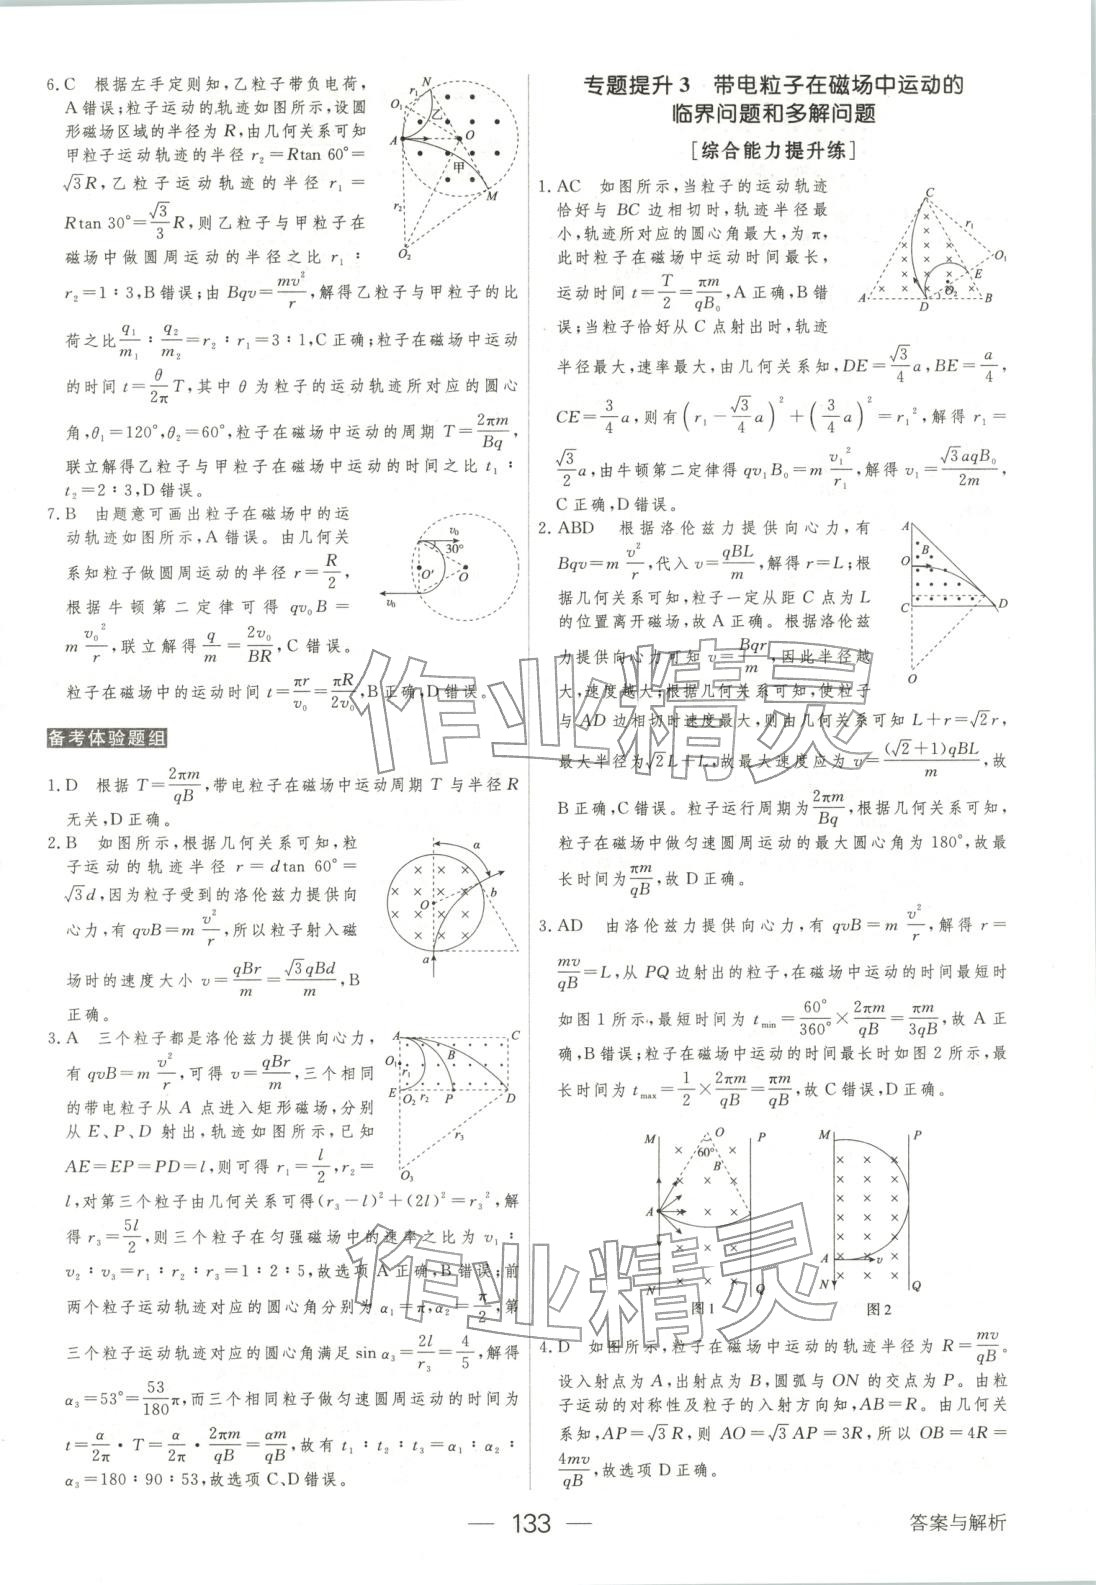 6. C　根据左手定则知,乙粒子带负电荷,
A错误;粒子运动的轨迹如图所示,设圆
形磁场区域的半径为R,由几何关系可知
甲粒子运动轨迹的半径 r₂=Rtan 60°=
√3R,乙粒子运动轨迹的半径 r₁=
Rtan 30°=√3/3 R,则乙粒子与甲粒子在
磁场中做圆周运动的半径之比 r₁∶
r₂=1∶3,B错误;由 Bqv=mv²/r,解得乙粒子与甲粒子的比
荷之比 q₁/m₁∶q₂/m₂=r₂∶r₁=3∶1,C正确;粒子在磁场中运动
的时间 t=θ/2π T,其中 θ 为粒子的运动轨迹所对应的圆心
角,θ₁=120°,θ₂=60°,粒子在磁场中运动的周期 T=2πm/Bq,
联立解得乙粒子与甲粒子在磁场中运动的时间之比 t₁∶
t₂=2∶3,D错误。
N
r₁
O₁
乙
A
O
甲
M
r₂
O₂
7. B　由题意可画出粒子在磁场中的运
动轨迹如图所示,A错误。由几何关
系知粒子做圆周运动的半径 r=R/2,
根据牛顿第二定律可得 qv₀B=
m v₀²/r,联立解得 q/m=2v₀/BR,C错误。
粒子在磁场中的运动时间 t=πr/v₀=πR/2v₀,B正确,D错误。
v₀
30°
O′
O
v₀
备考体验题组
1. D　根据 T=2πm/qB,带电粒子在磁场中运动周期 T 与半径 R
无关,D正确。
2. B　如图所示,根据几何关系可知,粒
子运动的轨迹半径 r=dtan 60°=
√3d,因为粒子受到的洛伦兹力提供向
心力,有 qvB=m v²/r,所以粒子射入磁
场时的速度大小 v=qBr/m=√3qBd/m,B
正确。
α
b
O
a
3. A　三个粒子都是洛伦兹力提供向心力,
有 qvB=m v²/r,可得 v=qBr/m,三个相同
的带电粒子从 A 点进入矩形磁场,分别
从 E、P、D 射出,轨迹如图所示,已知
AE=EP=PD=l,则可得 r₁=l/2,r₂=
l,对第三个粒子由几何关系可得(r₃-l)²+(2l)²=r₃²,解
得 r₃=5l/2,则三个粒子在匀强磁场中的速率之比为 v₁∶
v₂∶v₃=r₁∶r₂∶r₃=1∶2∶5,故选项A正确,B错误;前
两个粒子运动轨迹对应的圆心角分别为 α₁=π,α₂=π/2,第
三个粒子运动轨迹对应的圆心角满足 sin α₃=2l/r₃=4/5,解得
α₃=53°=53/180 π,而三个相同粒子做匀速圆周运动的时间为
t=α/2π·T=α/2π·2πm/qB=αm/qB,故有 t₁∶t₂∶t₃=α₁∶α₂∶
α₃=180∶90∶53,故选项C、D错误。
A
C
O₁
B
r₁
E
O₂
r₂
P
D
r₃
O₃
专题提升3　带电粒子在磁场中运动的
临界问题和多解问题
[综合能力提升练]
1. AC　如图所示,当粒子的运动轨迹
恰好与 BC 边相切时,轨迹半径最
小,轨迹所对应的圆心角最大,为 π,
此时粒子在磁场中运动时间最长,
运动时间 t=T/2=πm/qB₀,A正确,B错
误;当粒子恰好从 C 点射出时,轨迹
半径最大,速率最大,由几何关系知,DE=√3/4 a,BE=a/4,
CE=3/4 a,则有(r₁-√3/4 a)²+(3/4 a)²=r₁²,解得 r₁=
√3/2 a,由牛顿第二定律得 qv₁B₀=m v₁²/r₁,解得 v₁=√3aqB₀/2m,
C正确,D错误。
C
r₁
O₁
E
O₂
A
D
B
2. ABD　根据洛伦兹力提供向心力,有
Bqv=m v²/r,代入 v=qBL/m,解得 r=L;根
据几何关系可知,粒子一定从距 C 点为 L
的位置离开磁场,故A正确。根据洛伦兹
力提供向心力可知 v=Bqr/m,因此半径越
大,速度越大;根据几何关系可知,使粒子
与 AD 边相切时速度最大,则由几何关系可知 L+r=√2r,
最大半径为√2L+L,故最大速度应为 v=(√2+1)qBL/m,故
B正确,C错误。粒子运行周期为2πm/Bq,根据几何关系可知,
粒子在磁场中做匀速圆周运动的最大圆心角为180°,故最
长时间为πm/qB,故D正确。
A
B
O
C
D
O
3. AD　由洛伦兹力提供向心力,有 qvB=m v²/r,解得 r=
mv/qB=L,从 PQ 边射出的粒子,在磁场中运动的时间最短时
如图1所示,最短时间为 tmin=60°/360°×2πm/qB=πm/3qB,故A正
确,B错误;粒子在磁场中运动的时间最长时如图2所示,最
长时间为 tmax=1/2×2πm/qB=πm/qB,故C错误,D正确。
M
O
P
60°
B
A
N
Q
图1
M
P
A
v
N
Q
图2
4. D　如图所示,粒子在磁场中的运动轨迹半径为 R=mv/qB。
设入射点为A,出射点为B,圆弧与ON的交点为P。由粒
子运动的对称性及粒子的入射方向知,AB=R。由几何关
系知,AP=√3R,则 AO=√3AP=3R,所以 OB=4R=
4mv/qB,故选项D正确。
作业精灵
作业精灵
— 133 —
答案与解析